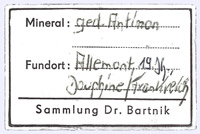 Mineral: ged. Antimon
Fundort: Allemont, 19. Jh.
Dauphine/Frankreich
Sammlung Dr. Bartnik